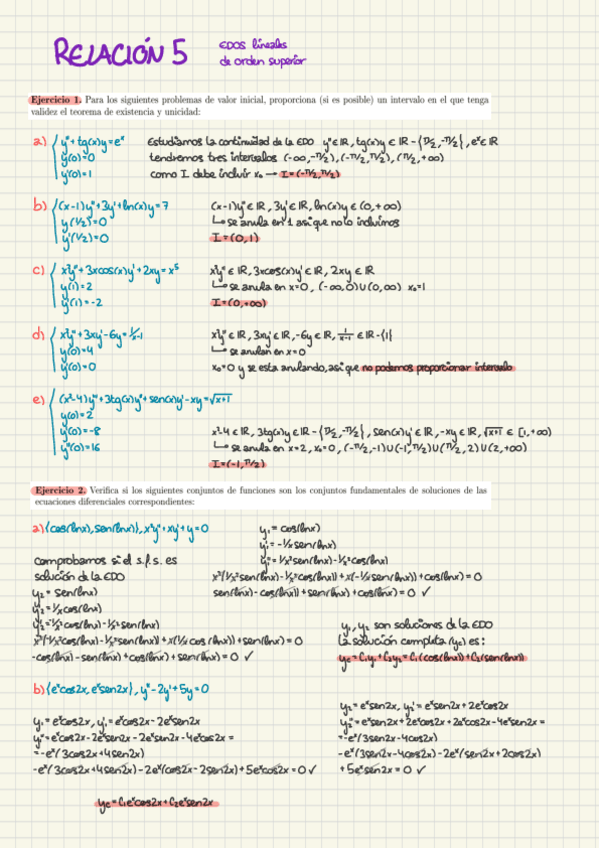 RELACIÓN 5
EDOS lineales
de orden superior
Ejercicio 1. Para los siguientes problemas de valor inicial, proporciona (si es posible) un intervalo en el que tenga
validez el teorema de existencia y unicidad:
a) { y''+tg(x)y=eˣ
y(0)=0
y'(0)=1
Estudiamos la continuidad de la EDO y''∈ℝ, tg(x)y∈ℝ-{π/2,-π/2}, eˣ∈ℝ
tendremos tres intervalos (-∞,-π/2),(-π/2,π/2),(π/2,+∞)
como I debe incluir x₀ → I=(-π/2,π/2)
b) { (x-1)y''+3y'+ln(x)y=7
y(1/2)=0
y'(1/2)=0
(x-1)y''∈ℝ, 3y'∈ℝ, ln(x)y∈(0,+∞)
↳ se anula en 1 así que no lo incluimos
I=(0,1)
c) { x²y''+3xcos(x)y'+2xy=x⁵
y(1)=2
y'(1)=-2
x²y''∈ℝ, 3xcos(x)y'∈ℝ, 2xy∈ℝ
↳ se anula en x=0, (-∞,0)∪(0,∞) x₀=1
I=(0,+∞)
d) { x²y''+3xy'-6y=1/x-1
y(0)=4
y'(0)=0
x²y''∈ℝ, 3xy'∈ℝ, -6y∈ℝ, 1/x-1 ∈ℝ-{1}
↳ se anulan en x=0
x₀=0 y se esta anulando, así que no podemos proporcionar intervalo
e) { (x²-4)y'''+3tg(x)y''+sen(x)y'-xy=√x+1
y(0)=2
y'(0)=-8
y''(0)=16
x²-4∈ℝ, 3tg(x)y∈ℝ-{π/2,-π/2}, sen(x)y'∈ℝ, -xy∈ℝ, √x+1 ∈ [1,+∞)
↳ se anula en x=2, x₀=0, (-π/2,-1)∪(-1,π/2)∪(π/2,2)∪(2,+∞)
I=(-1,π/2)
Ejercicio 2. Verifica si los siguientes conjuntos de funciones son los conjuntos fundamentales de soluciones de las
ecuaciones diferenciales correspondientes:
a) {cos(lnx),sen(lnx)}, x²y''+xy'+y=0
comprobamos si el s.f.s. es
solución de la EDO
y₂=sen(lnx)
y₂'=1/xcos(lnx)
y₂''=-1/x²cos(lnx)-1/x²sen(lnx)
x²(-1/x²cos(lnx)-1/x²sen(lnx))+x(1/xcos(lnx))+sen(lnx)=0
-cos(lnx)-sen(lnx)+cos(lnx)+sen(lnx)=0 ✓
y₁=cos(lnx)
y₁'=-1/xsen(lnx)
y₁''=1/x²sen(lnx)-1/x²cos(lnx)
x²(1/x²sen(lnx)-1/x²cos(lnx))+x(-1/xsen(lnx))+cos(lnx)=0
sen(lnx)-cos(lnx)+sen(lnx)+cos(lnx)=0 ✓
y₁,y₂ son soluciones de la EDO
La solución completa (yc) es:
yc=C₁y₁+C₂y₂=C₁(cos(lnx))+C₂(sen(lnx))
b) {eˣcos2x,eˣsen2x}, y''-2y'+5y=0
y₁=eˣcos2x, y₁'=eˣcos2x-2eˣsen2x
y₁''=eˣcos2x-2eˣsen2x-2eˣsen2x-4eˣcos2x=
=-eˣ(3cos2x+4sen2x)
-eˣ(3cos2x+4sen2x)-2eˣ(cos2x-2sen2x)+5eˣcos2x=0 ✓
y₂=eˣsen2x, y₂'=eˣsen2x+2eˣcos2x
y₂''=eˣsen2x+2eˣcos2x+2eˣcos2x-4eˣsen2x=
=-eˣ(3sen2x-4cos2x)
-eˣ(3sen2x-4cos2x)-2eˣ(sen2x+2cos2x)
+5eˣsen2x=0 ✓
yc=C₁eˣcos2x+C₂eˣsen2x